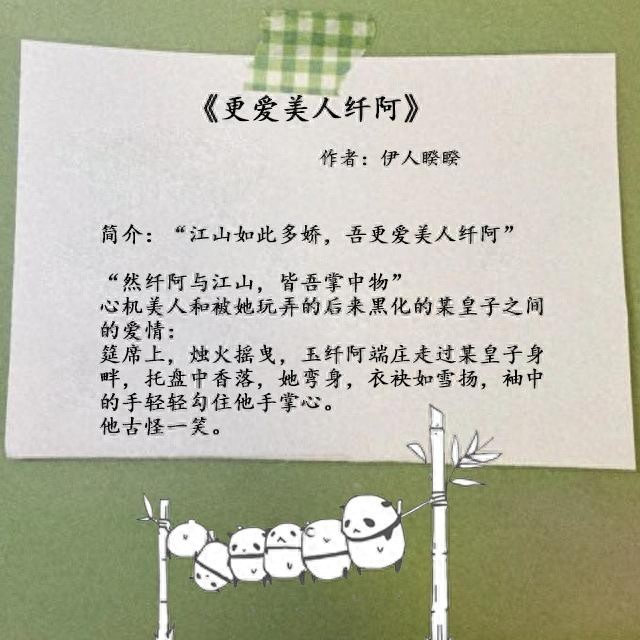 《更爱美人纤阿》
作者：伊人睽睽
简介：“江山如此多娇，吾更爱美人纤阿”
“然纤阿与江山，皆吾掌中物”
心机美人和被她玩弄的后来黑化的某皇子之间
的爱情：
筵席上，烛火摇曳，玉纤阿端庄走过某皇子身
畔，托盘中香落，她弯身，衣袂如雪扬，袖中
的手轻轻勾住他手掌心。
他古怪一笑。